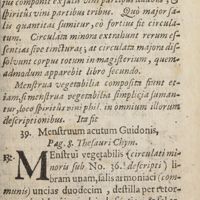 jus componit ex sale vini partibus duabus, &
spiritus vini partibus tribus. Quò major sa-
lis quantitas sumitur, eò fortius fit circula-
tum. Circulata minora extrahunt rerum es-
sentias sive tincturas, at circulata majora dis-
solvunt corpus totum in magisterium, quem-
admodum apparebit libro secundo.
Menstrua vegetabilia composita fiunt et-
iam, si menstrua vegetabilia simplicia suman-
tur, loco spiritus vini phil. in omnium illorum
descriptionibus. Ita fit
39. Menstruum acutum Guidonis,
Pag. 8. Thesauri Chym.
Menstrui vegetabilis (circulati mi-
noris sub No. 36. descripti) li-
bram unam, salis armoniaci (com-
munis) uncias duodecim, destilla per retor-